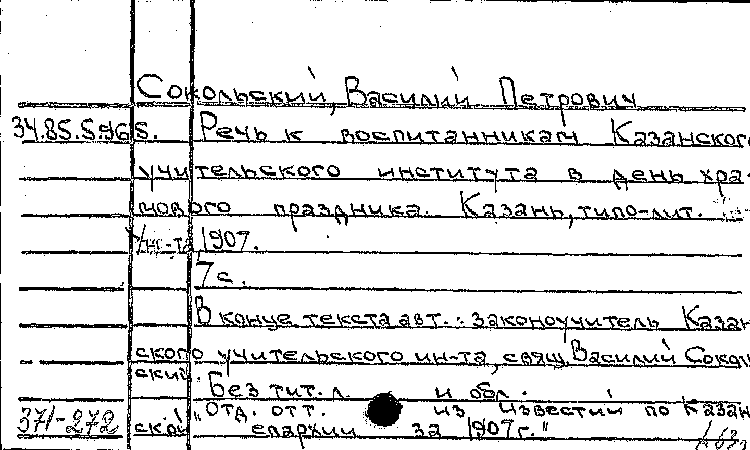 Сокольский, Василий Петрович
34.85.5.965. Речь к воспитанникам Казанского
учительского института в день хра-
мового праздника. Казань, типо-лит.
Ун-та, 1907.
7 с.
В конце текста авт.: законоучитель Казан
ского учительского ин-та, свящ. Василий Сокол
ский.
Без тит. л. и обл.
"Отд. отт. из Известий по Казан
371-272 ской епархии за 1907 г."